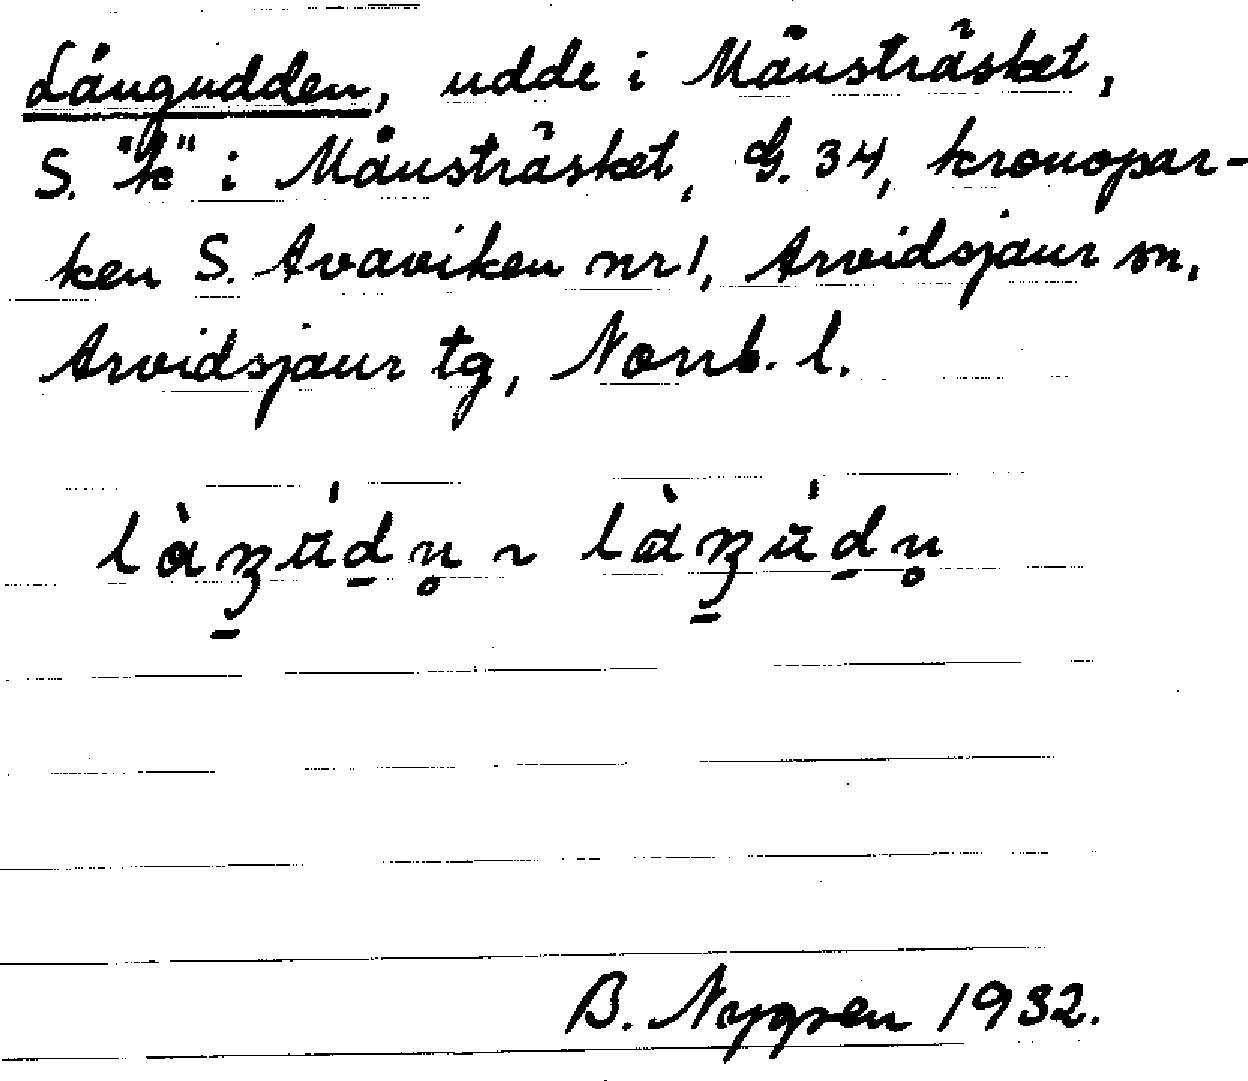 Långudden, udde i Månsträsket,
S. "k" i Månsträsket, G. 34, kronopar-
ken S. Avaviken nr 1, Arvidsjaur sn,
Arvidsjaur tg, Norrb. l.
B. Nygren 1932.